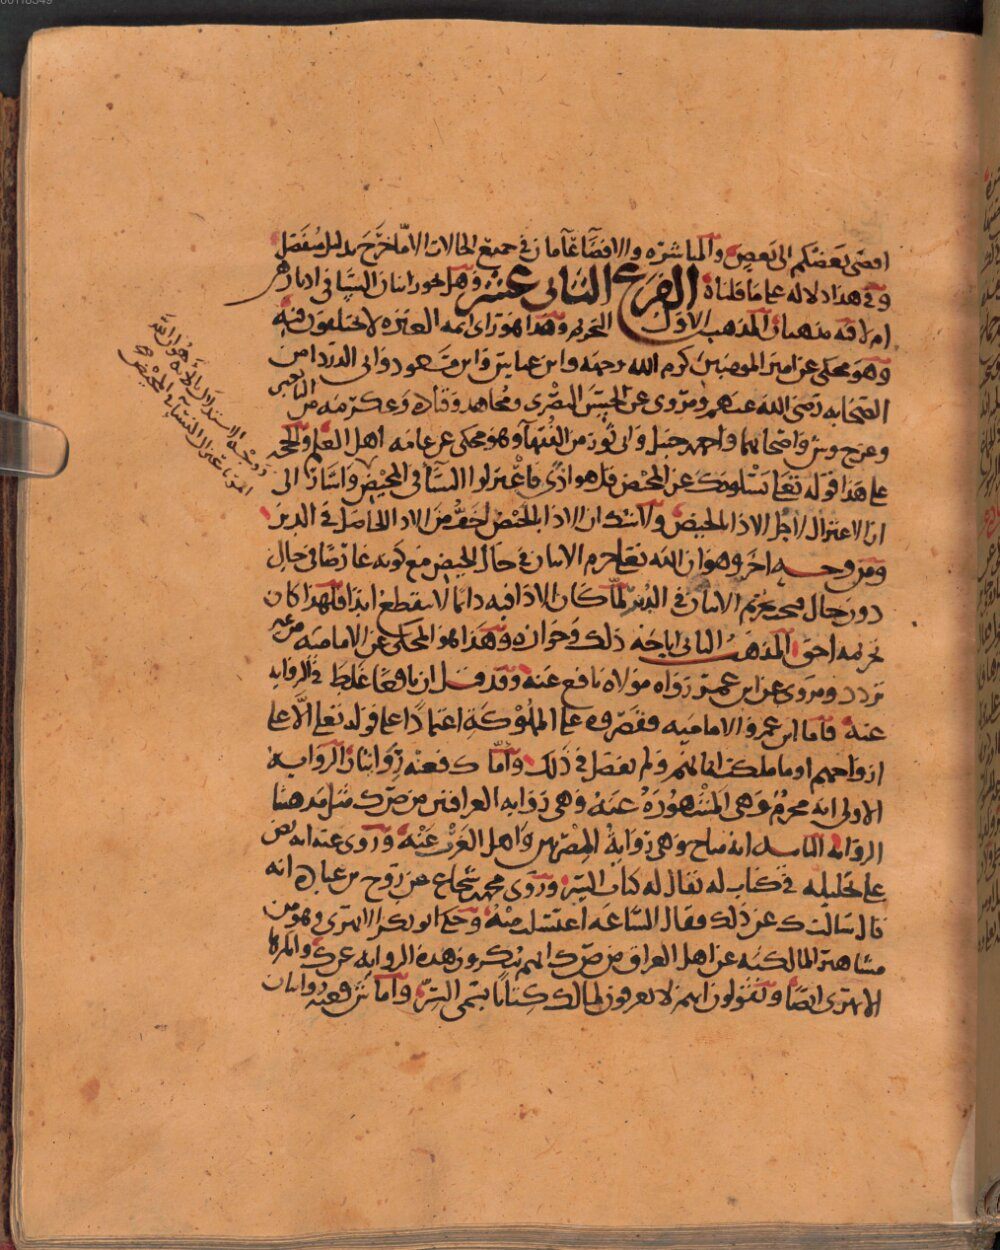 افضى بعضكم الى بعض والمباشره والافضآ عآمان في جميع الحالات الا ما خرج بدليل منفصل
وفي هذا دلاله على ما قلناه الفرع الثانى عشر وهل يجوز اتيان النسآ في ادبارهن
ام لا فيه مذهبان المذهب الاول التحريم وهذا هو راى ايمه العتره لا يختلفون فيه
وهو محكى عن امير المومنين كرم الله وجهه وابن عباس وابن مسعود وابى الدرداء من
الصحابه رضى الله عنهم ومروى عن الحسن البصرى ومجاهد وقتاده وعكرمه من التابعين
وعن ح وش واصحابهما واحمد حنبل وابى ثور من الفقهآ وهو محكى عن عامه اهل العلم والحجه
على هذا قوله تعلى يسئلونك عن المحيض قل هو اذى فاعتزلوا النسآ في المحيض واشار الى
ان الاعتزال لاجل الاذا بالمحيض ولا شك ان الاذا بالمحيض اخف من الاذا الحاصل في الدبر
ومن وجه اخر وهو ان الله تعلى حرم الاتيان في حال الحيض مع كونه عارضا في حال
دون حال فتحريم الاتيان في الدبر لما كان الاذا فيه دائما لا ينقطع ابدا فلهذا كان
تحريمه احق المذهب الثانى اباحه ذلك وجوازه وهذا هو المحكى عن الاماميه من غير
تردد ومروى عن ابن عمر رواه مولاه نافع عنه وقد قيل ان نافعا غلط في الروايه
عنه فاما ابن عمر والاماميه فقصروه على المملوكه اعتمادا على قوله تعلى الا على
ازواجهم او ما ملكت ايمانهم ولم يفصل في ذلك واما ك فعنه روايتان الروايه
الاولى انه محرم وهى المشهوره عنه وهى روايه العراقيين من صرك مثل مذهبنا
الروايه الثانيه انه مباح وهى روايه المصريين واهل الغرب عنه وروى عنه انه نص
على تحليله في كتاب له يقال له كتاب السر وروى محمد شجاع عن روح بن عباده انه
قال سالت ك عن ذلك فقال الساعه اغتسلت منه وحكى ابو بكر الابهرى وهو من
مشاهير المالكيه عن اهل العراق من صرك انهم ينكرون هذه الروايه عن ك وانكرها
الابهرى ايضا ويقولون انهم لا يعرفون لمالك كتابا يسمى السر واما ش فعنه روايتان